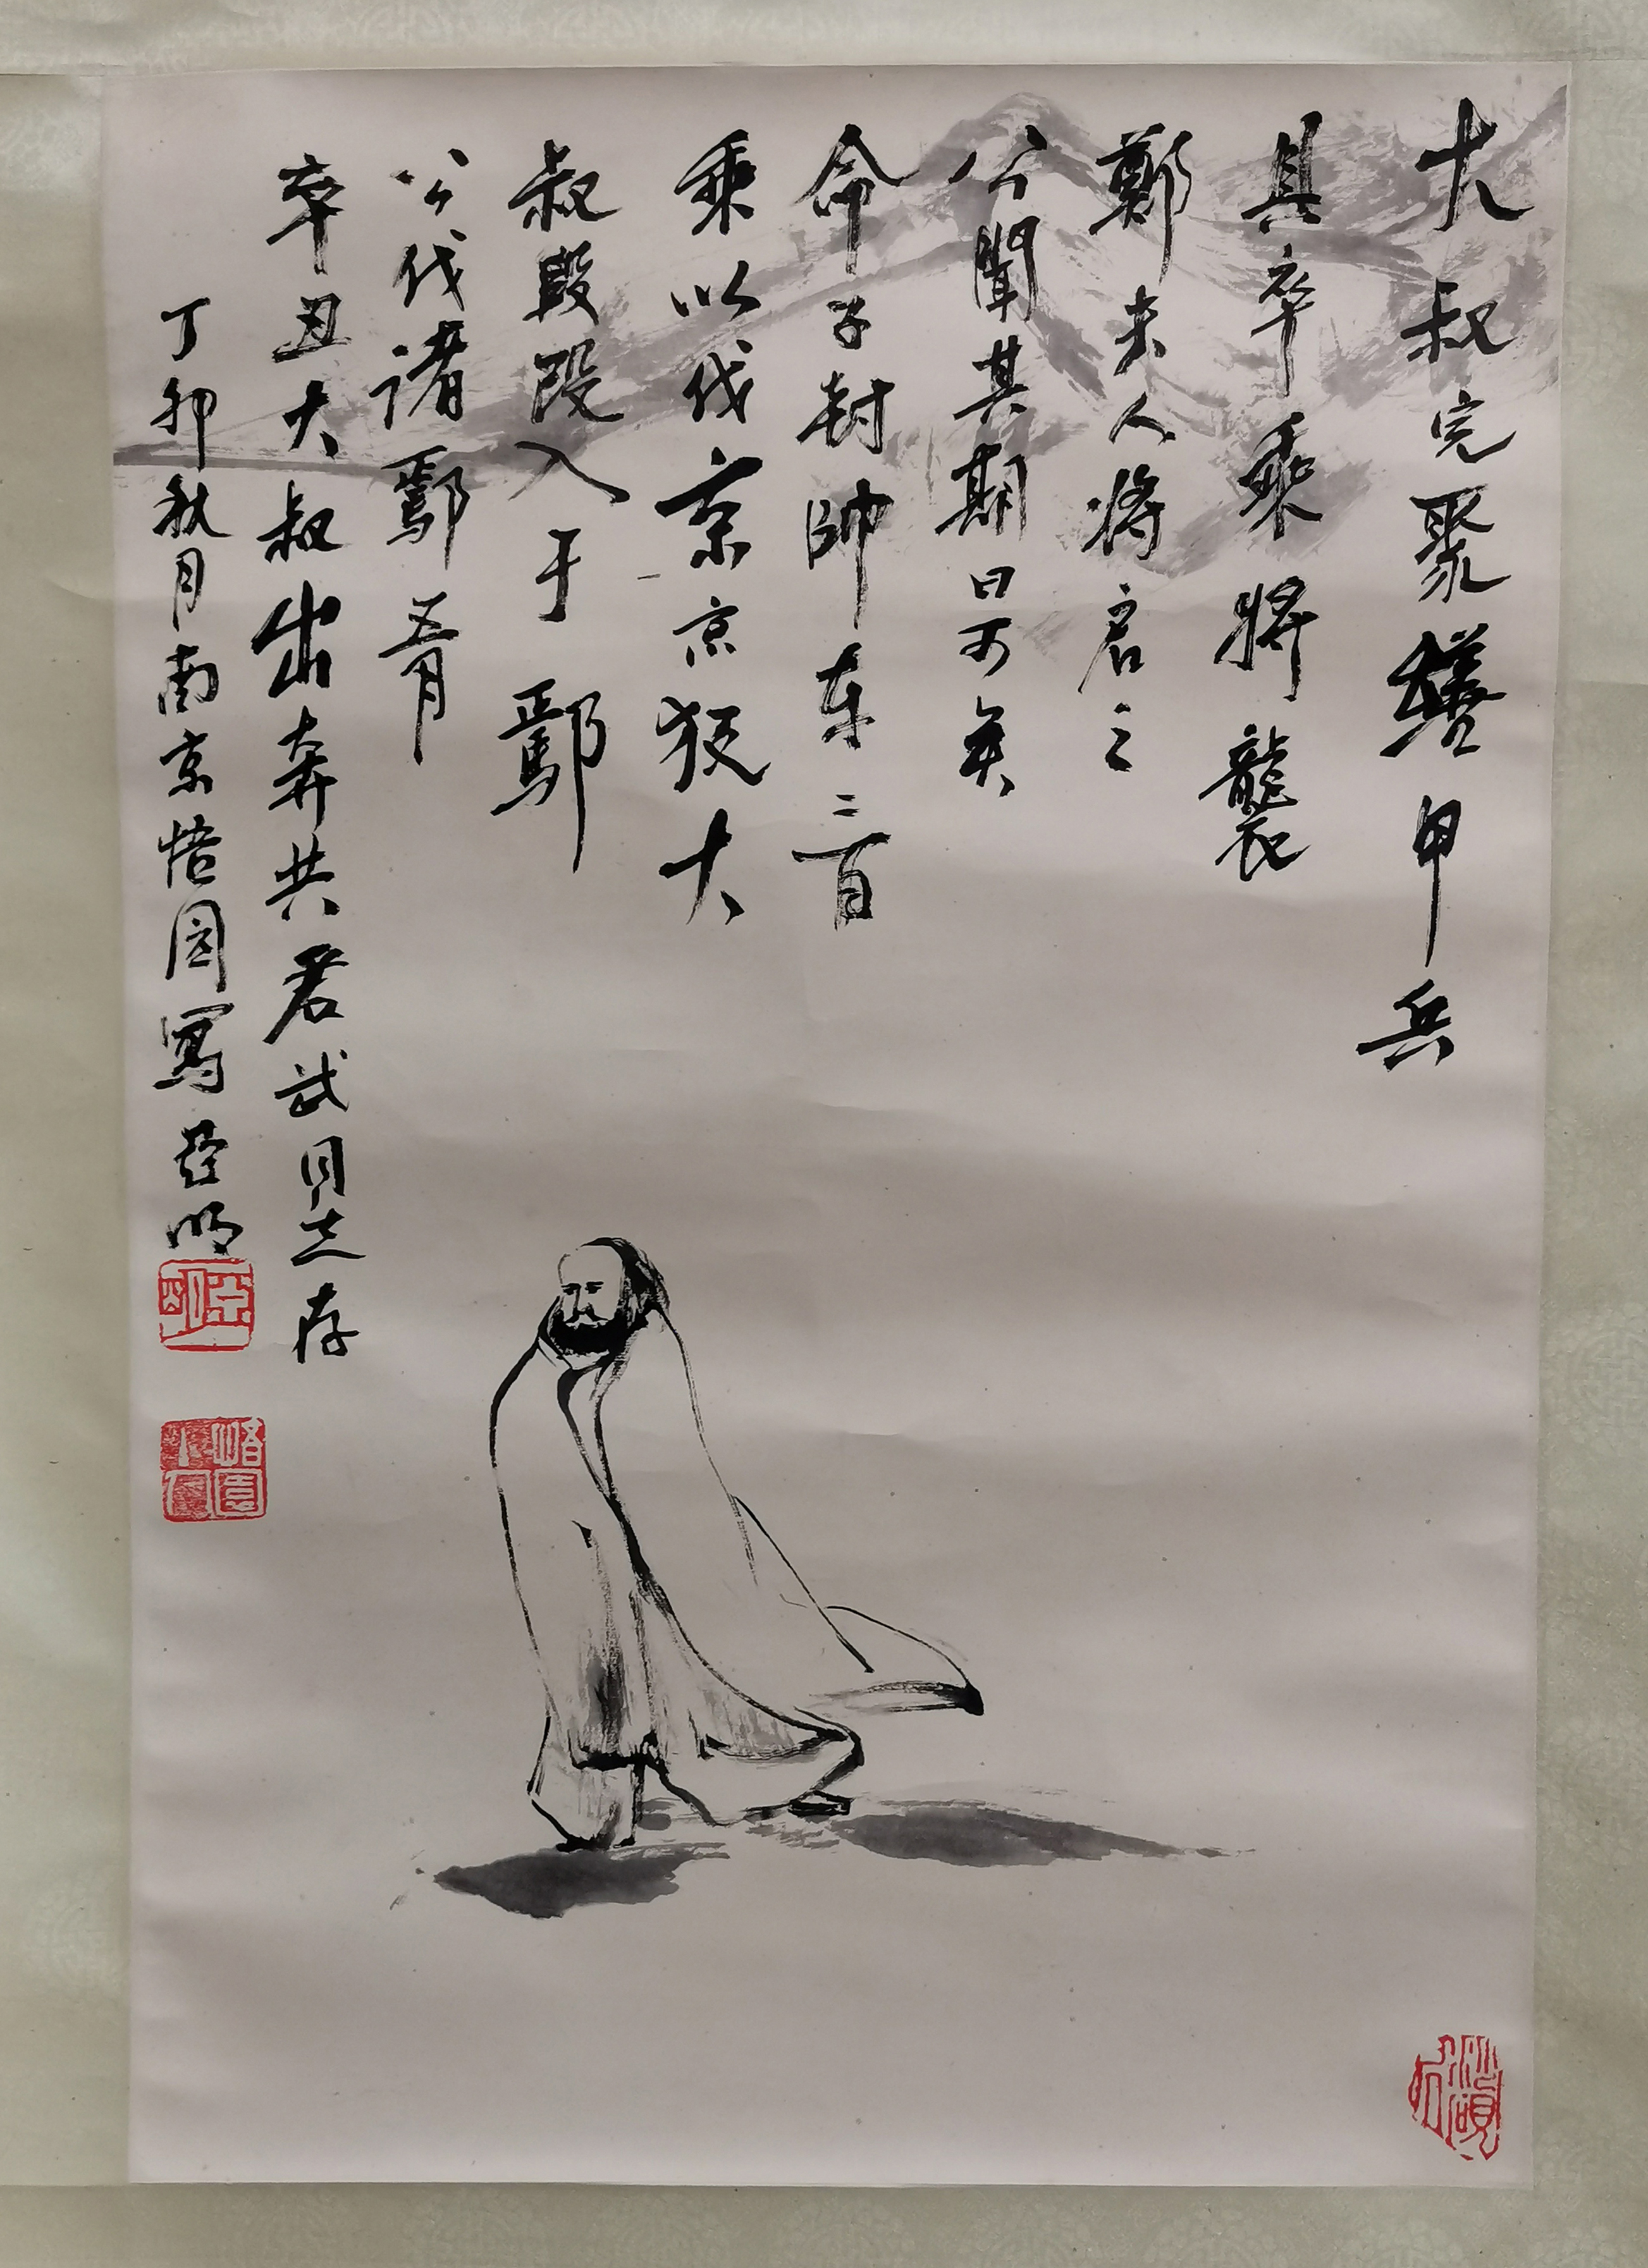 大叔完聚繕甲兵
具卒乘將襲
鄭夫人將启之
公聞其期曰可矣
命子封帥车二百
乘以伐京京叛大
叔段段入于鄢
公伐诸鄢五月
辛丑大叔出奔共君武同志存
丁卯秋月南京悟园寫亞明
亞明